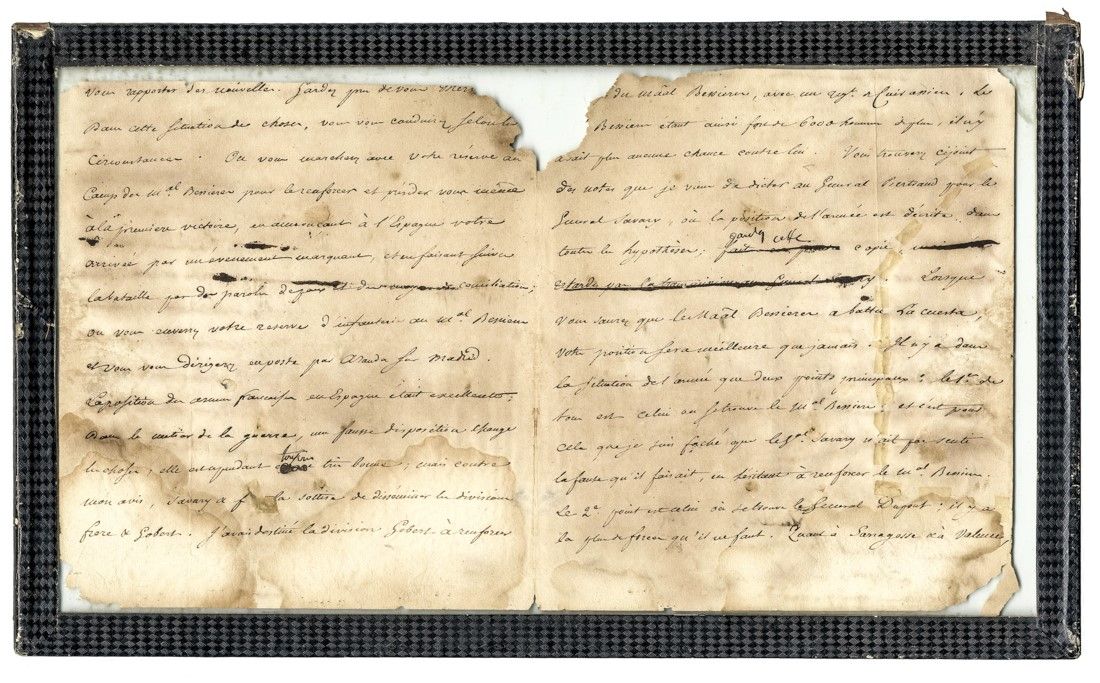 vous rapporter des nouvelles. Gardez près de vous
Dans cette situation de choses, vous vous conduirez selon les
Circonstances. Ou vous marcherez avec votre réserve au
Camp du Mal Bessieres pour le renforcer et présider vous même
à la première victoire, en annonçant à l'Espagne votre
arrivée par un évenement marquant, et en faisant suivre
la bataille par des paroles de paix et de conciliation;
ou vous enverrez votre reserve d'infanterie au Mal Bessieres
et vous vous dirigerez en poste par Aranda sur Madrid.
La position des armées françaises en Espagne était excellente;
Dans le métier de la guerre, une fausse disposition change
les choses; elle est cependant toujours très bonne; mais contre
mon avis, Savary a f la sottise de disséminer les divisions
frere & Gobert. J'avais destiné la division Gobert à renforcer
du Maal Bessieres, avec un regt. de Cuirassiers. Le
Bessieres étant ainsi fort de 6000 hommes de plus, il n'y
avait plus aucune chance contre lui. Vous trouverez cijoint
des notes que je viens de dicter au General Bertrand pour le
General Savary, où la position de l'armée est décrite dans
toutes les hypothèses; gardez cette copie,
Lorsque
Vous saurez que le Maal Bessieres a battu La cuesta,
votre position sera meilleure que jamais. Il n'y a dans
la situation de l'armée que deux points principaux: le 1er de
tous est celui où se trouve le Mal Bessieres; et c'est pour
cela que je suis fâché que le Gal Savary n'ait pas senti
la faute qu'il faisait, en hésitant à renforcer le Mal Bessieres
Le 2e point est celui où se trouve le General Dupont: il y a
là plus de forces qu'il ne faut. Quant à Sarragosse & à Valence,